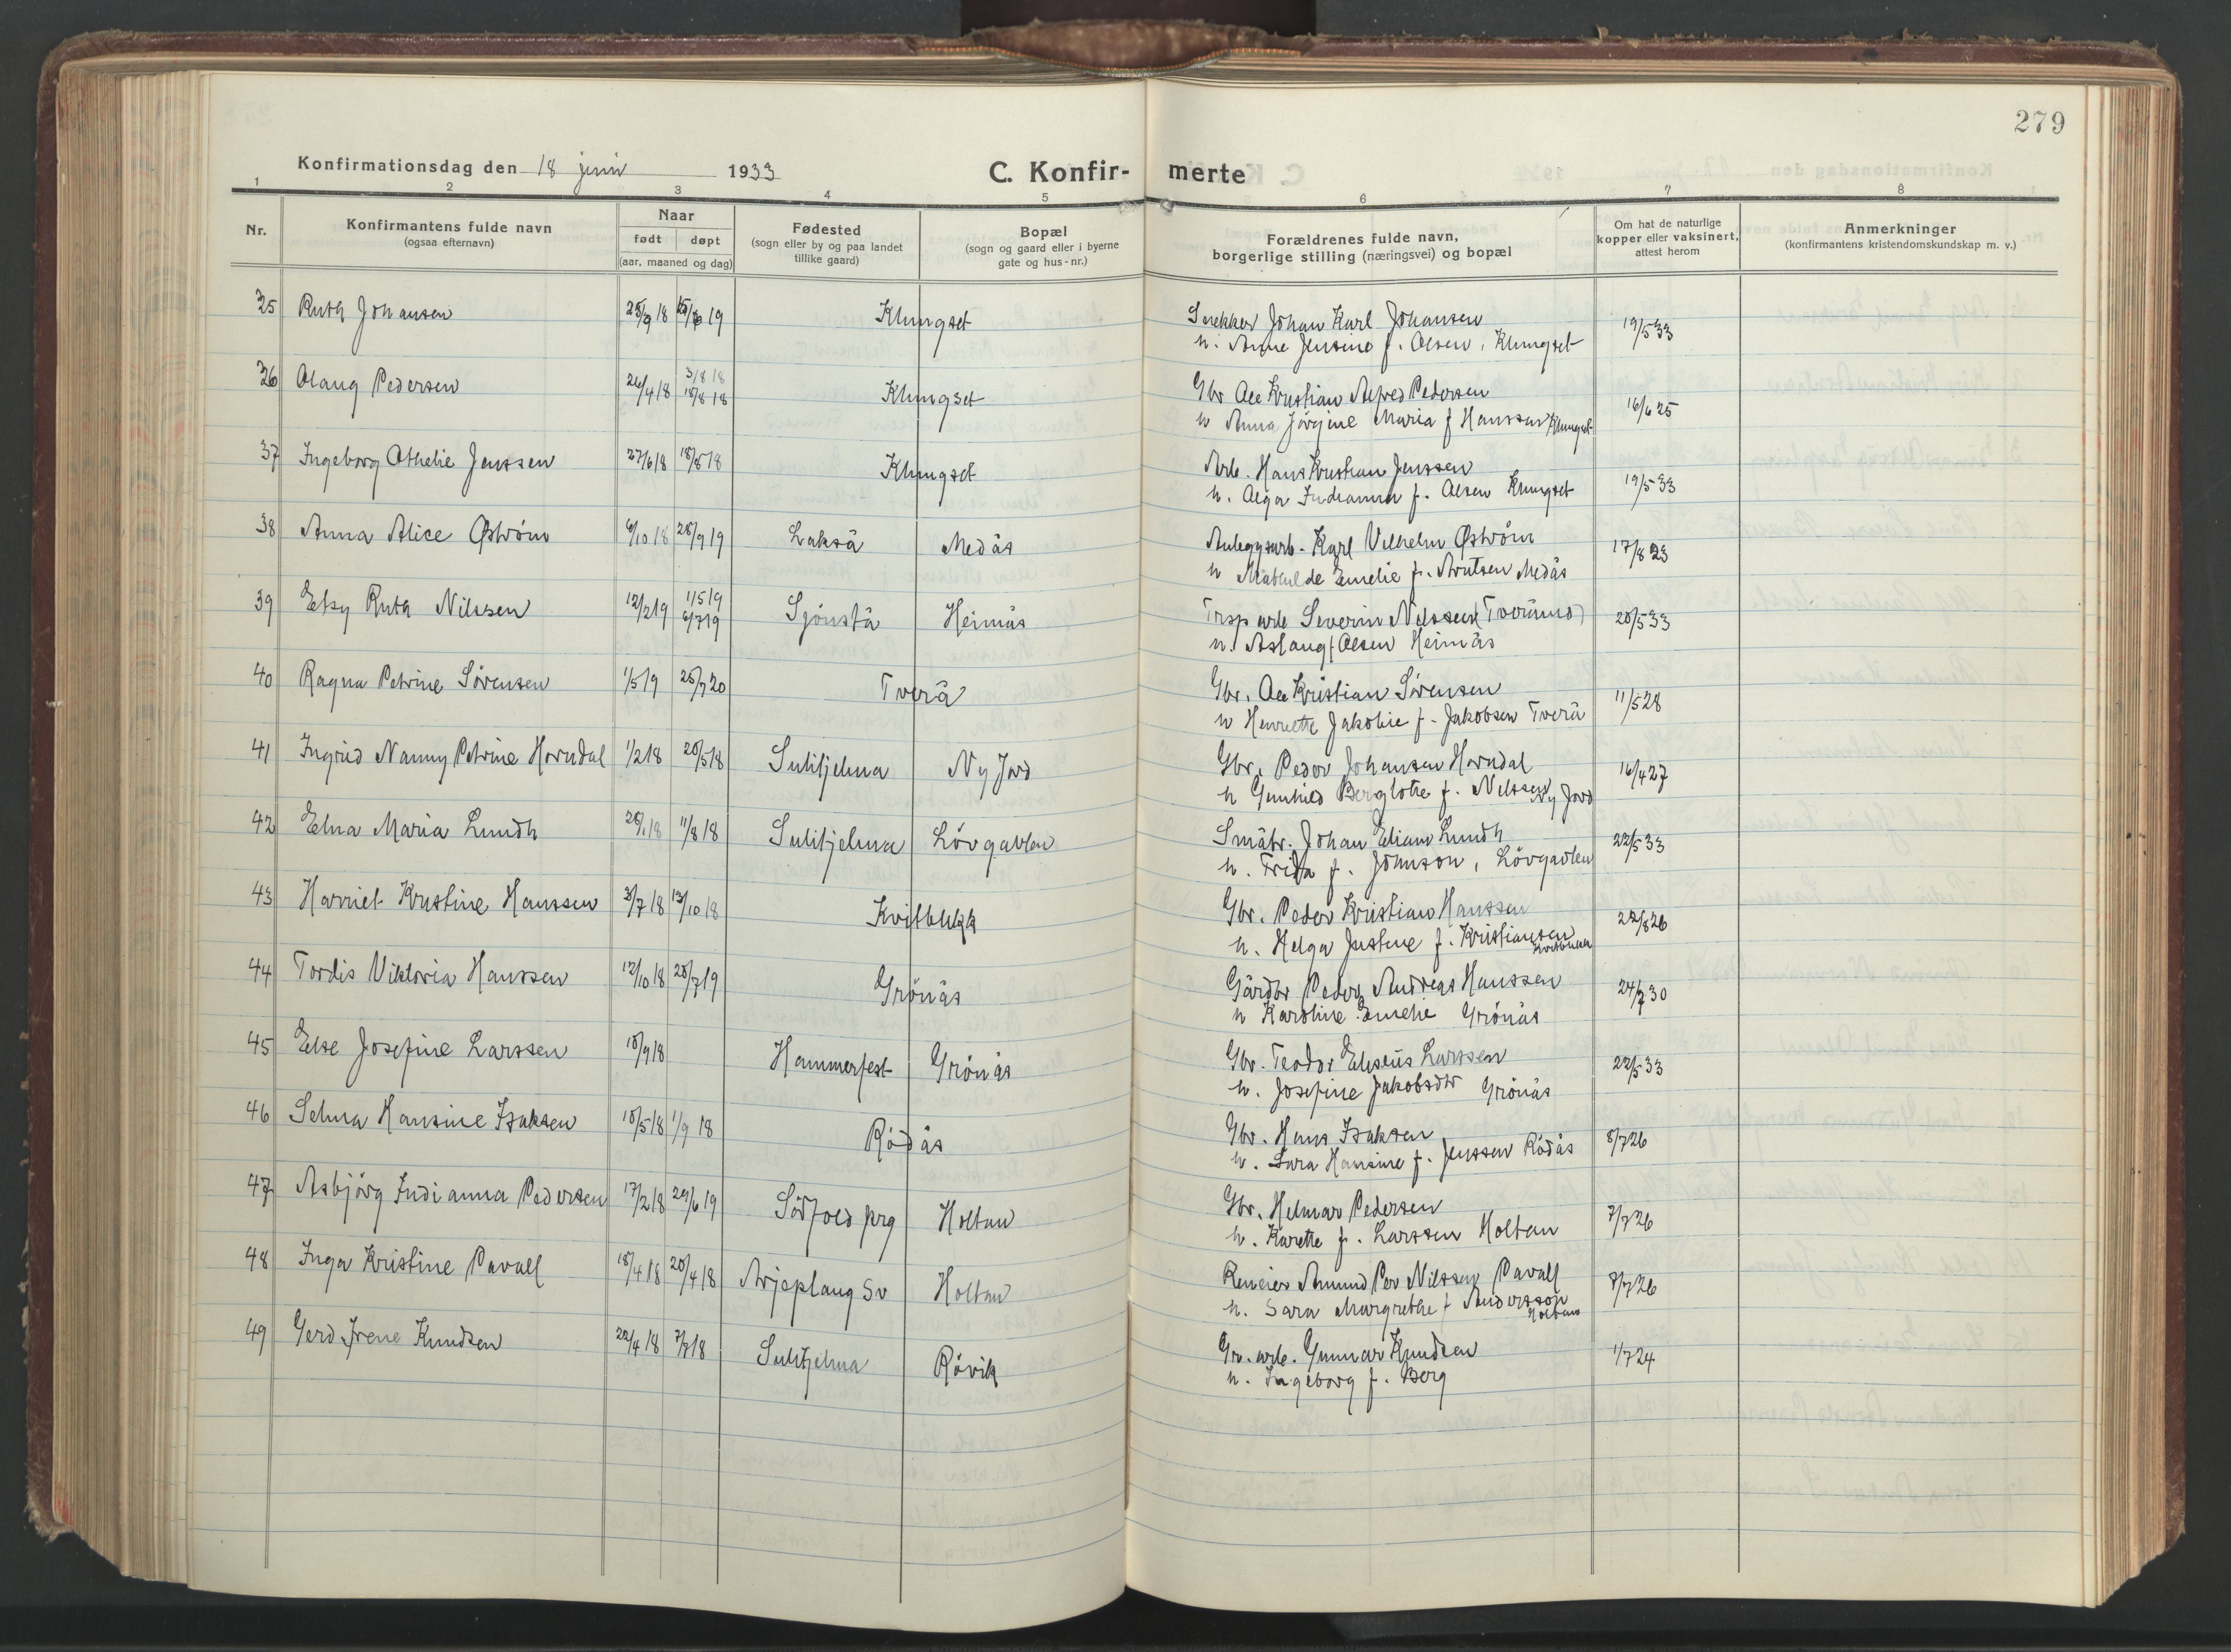 279
Konfirmationsdag den 18 juni 1933
C. Konfir- merte
1 2 3 4 5 6 7 8
Nr.
Konfirmantens fulde navn
(ogsaa efternavn)
Naar
født døpt
(aar, maaned og dag)
Fødested
(sogn eller by og paa landet
tillike gaard)
Bopæl
(sogn og gaard eller i byerne
gate og hus-nr.)
Forældrenes fulde navn,
borgerlige stilling (næringsvei) og bopæl
Om hat de naturlige
kopper eller vaksinert,
attest herom
Anmerkninger
(konfirmantens kristendomskundskap m. v.)
35 Ruth Johansen 25/9 18 19 Klungset Snekker Johan Karl Johansen 19/5 33
h. Anne Jensine f. Olsen, Klungset
36 Olaug Pedersen 26/4 18 3/8 18 Klungset Gbr Ole Kristian Alfred Pedersen 16/6 25
18/8 18
h Anna Jörgine Maria f Hanssen Klungset
37 Ingeborg Othelie Jenssen 27/6 18 18/8 18 Klungset Arb. Hans Kristian Jenssen 19/5 33
h. Olga Indianna f. Olsen Klungset
38 Anna Alice Øström 6/10 18 28/9 19 Lakså Medås Anleggsarb. Karl Vilhelm Øström 17/8 23
h Mathilde Emelie f. Arntsen Medås
39 Elsy Ruth Nilssen 12/2 19 1/5 19 Sjönstå Heimås Trsp arb Severin Nilssen (Tverånes) 20/5 33
6/7 19
h. Aslaug f Olsen Heimås
40 Ragna Petrine Sörensen 1/5 19 25/7 20 Tverå Gbr. Ole Kristian Sörensen 11/5 28
h Henriette Jakobie f. Jakobsen Tverå
41 Ingrid Nanny Petrine Horndal 1/2 18 20/5 18 Sulitjelma Ny Jord Gbr. Peder Johansen Horndal 16/4 27
h Gunhild Berglotte f. Nilssen Ny Jord
42 Elna Maria Lundh 26/1 18 11/8 18 Sulitjelma Lövgavlen Småbr. Johan Elian Lundh 22/5 33
h. Frida f. Johnson, Lövgavlen
43 Harriet Kristine Hanssen 3/7 18 13/10 18 Kvitblikk Gbr. Peder Kristian Hanssen 22/8 26
h. Helga Justine f. Kristiansen Kvitblikk
44 Tordis Viktoria Hanssen 12/10 18 20/7 19 Grönås Gårdbr Peder Andreas Hanssen 24/7 30
h Karoline Emelie Grönås
45 Else Josefine Larssen 18/9 18 Hammerfest Grönås Gbr. Teodor Eliseus Larssen 22/5 33
h. Josefine Jakobsdtr Grönås
46 Selma Hansine Isaksen 18/5 18 1/9 18 Rödås Gbr. Hans Isaksen 8/7 26
h. Lara Hansine f. Jenssen Rödås
47 Asbjörg Indianna Pedersen 17/2 18 29/6 19 Sörfold prg Holtan Gbr. Helmar Pedersen 7/7 26
h. Karette f. Larssen Holtan
48 Inga Kristine Pavall 18/4 18 20/4 18 Arjeplaug Sv Holtan Reneier Amund Per Nilssen Pavall 8/7 26
h. Sara Margrethe f Andersson Holtan
49 Gerd Irene Knudsen 22/4 18 7/7 18 Sulitjelma Rövik Gr. arb. Gunnar Knudsen 1/7 24
h. Ingeborg f. Berg